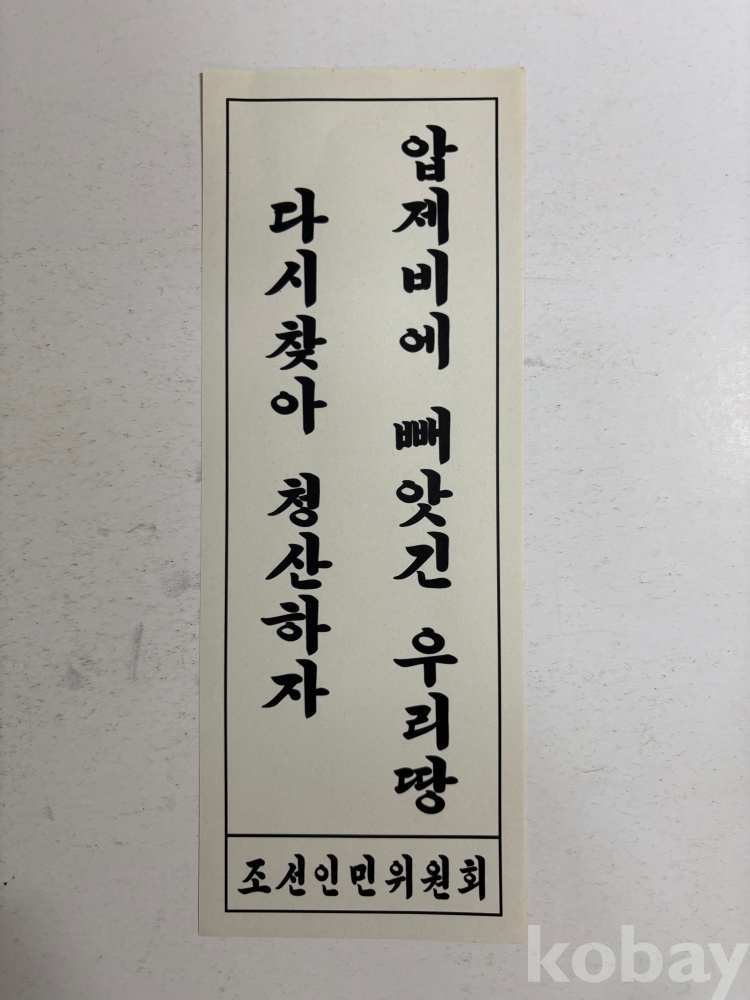 압제비에 빼앗긴 우리땅
다시찾아 청산하자
조선인민위원회
kobay